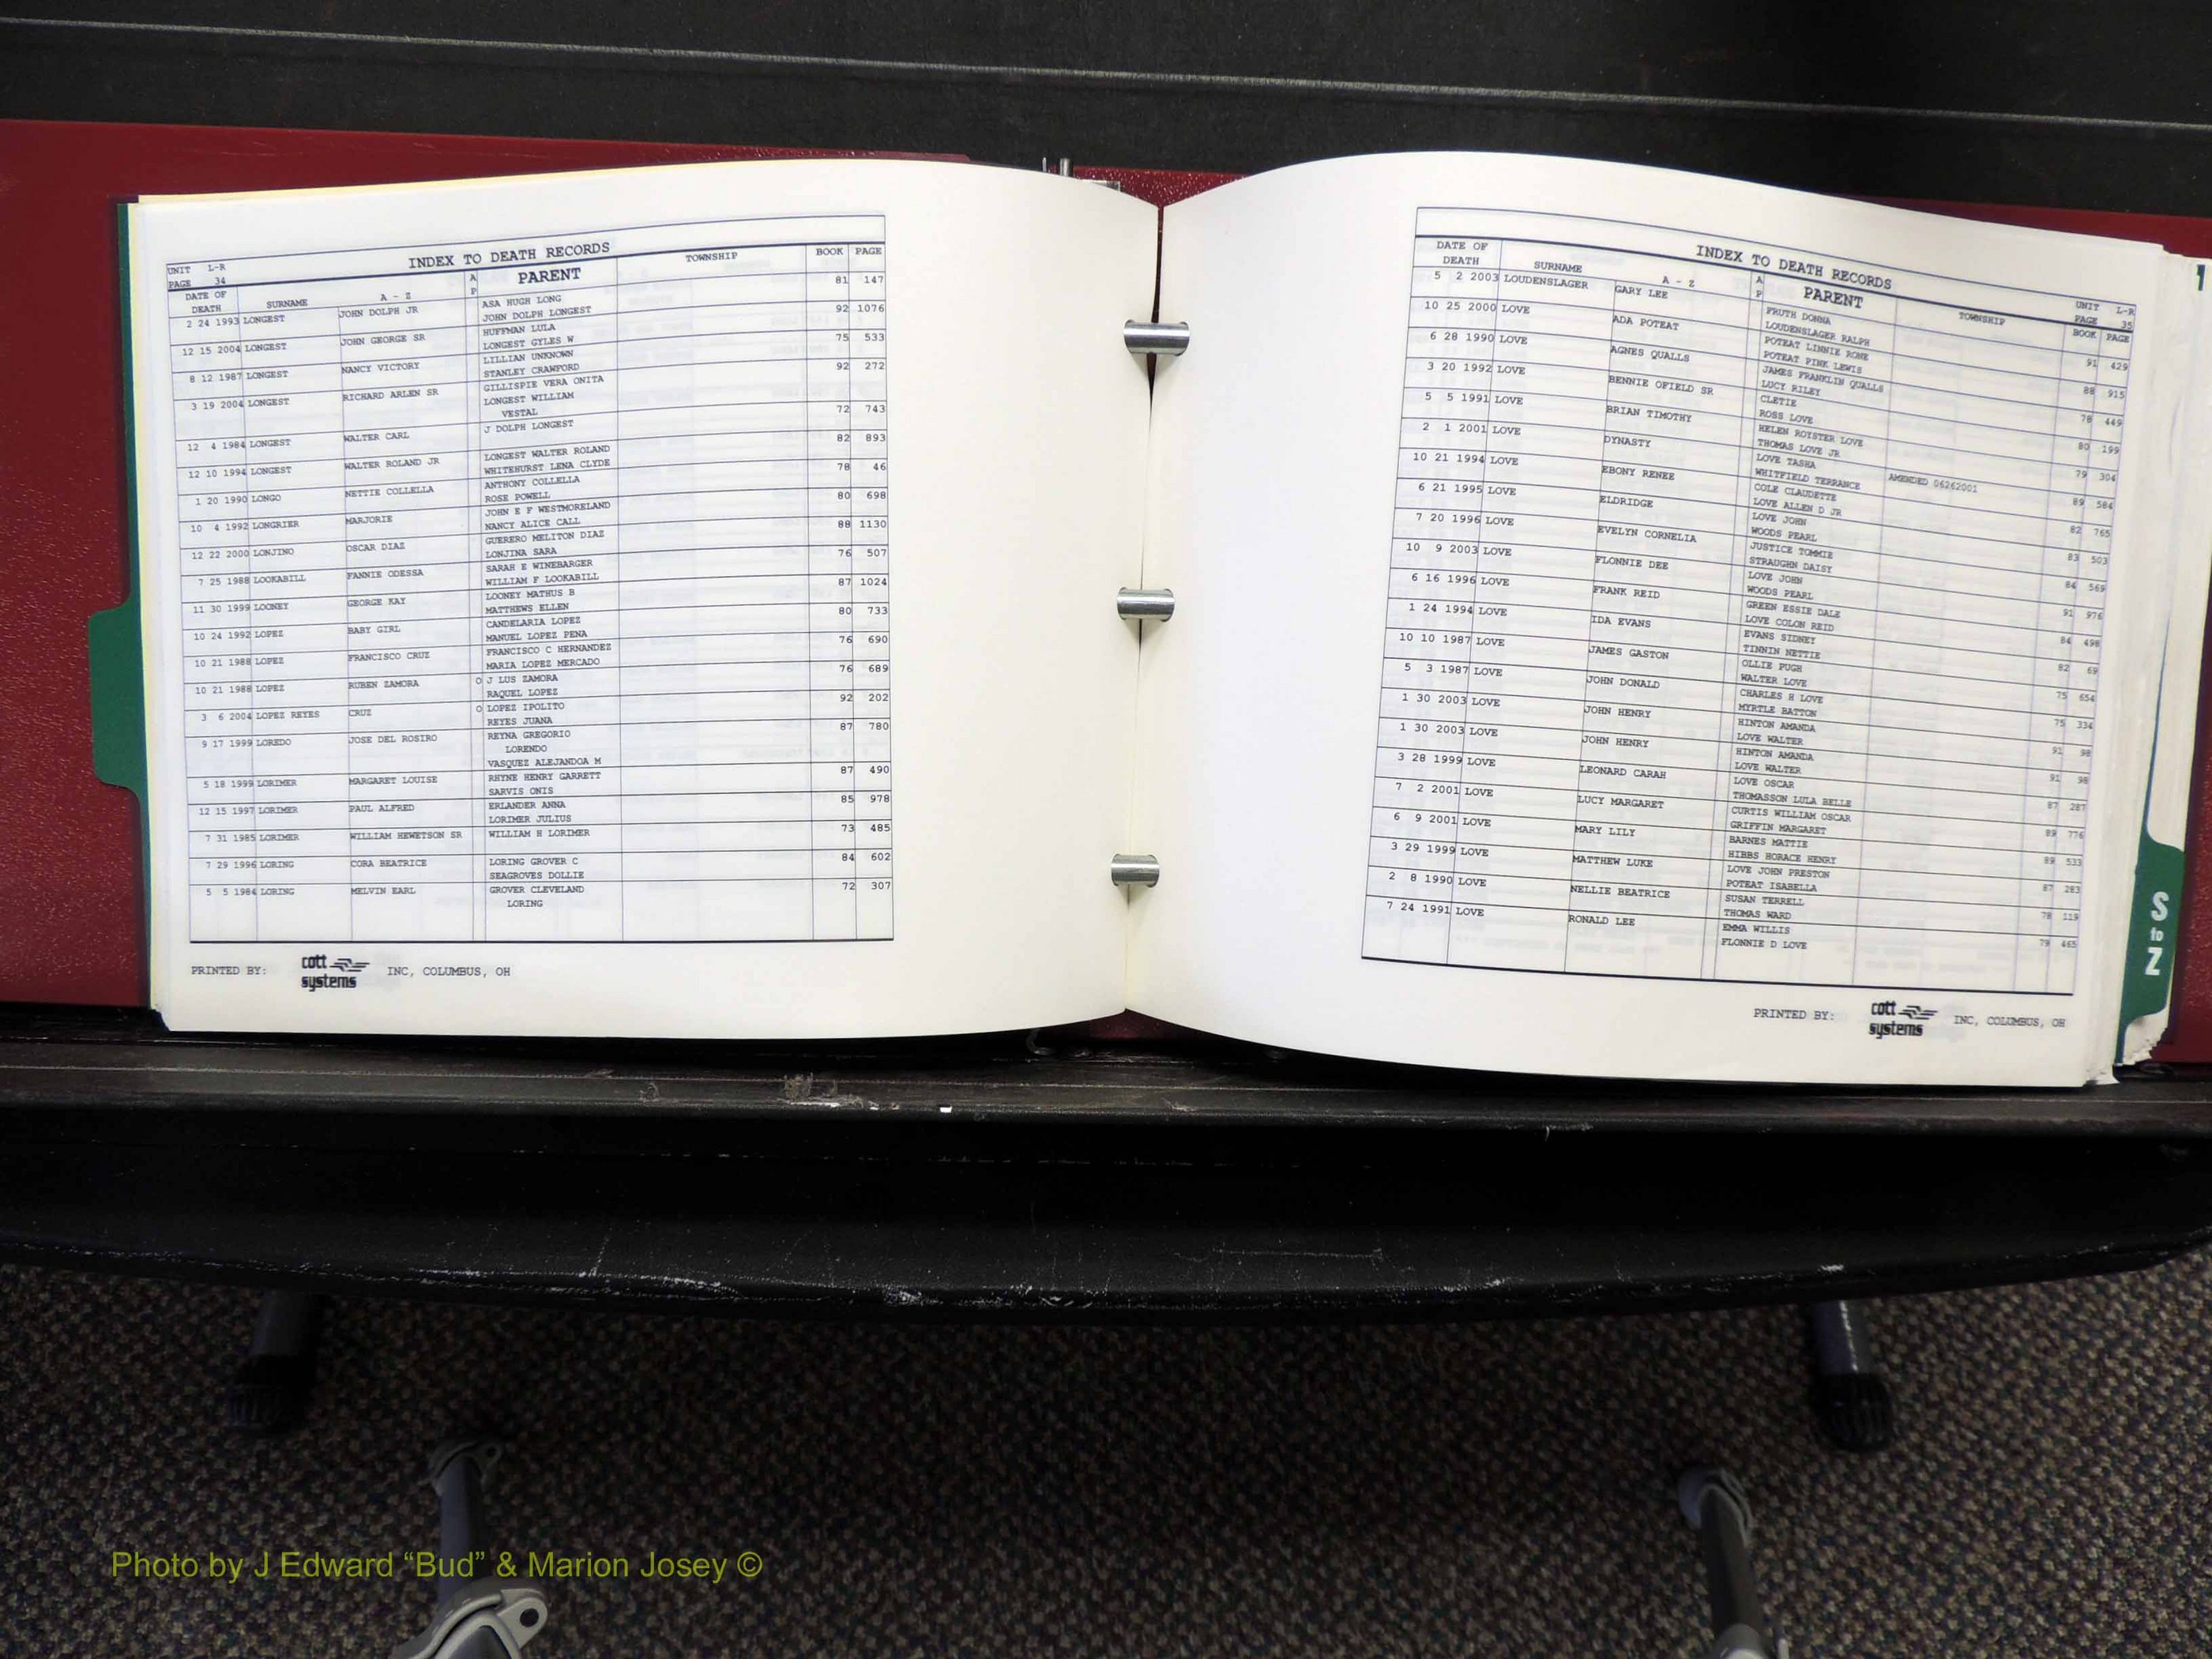 UNIT L-R
PAGE 34
INDEX TO DEATH RECORDS
DATE OF DEATH SURNAME A - Z A P PARENT TOWNSHIP BOOK PAGE
2 24 1993 LONGEST JOHN DOLPH JR ASA HUGH LONG 81 147
JOHN DOLPH LONGEST
12 15 2004 LONGEST JOHN GEORGE SR HUFFMAN LULA 92 1076
LONGEST GYLES W
8 12 1987 LONGEST NANCY VICTORY LILLIAN UNKNOWN 75 533
STANLEY CRAWFORD
3 19 2004 LONGEST RICHARD ARLEN SR GILLISPIE VERA ONITA 92 272
LONGEST WILLIAM
VESTAL
12 4 1984 LONGEST WALTER CARL J DOLPH LONGEST 72 743
12 10 1994 LONGEST WALTER ROLAND JR LONGEST WALTER ROLAND 82 893
WHITEHURST LENA CLYDE
1 20 1990 LONGO NETTIE COLLELLA ANTHONY COLLELLA 78 46
ROSE POWELL
10 4 1992 LONGRIER MARJORIE JOHN E F WESTMORELAND 80 698
NANCY ALICE CALL
12 22 2000 LONJINO OSCAR DIAZ GUERERO MELITON DIAZ 88 1130
LONJINA SARA
7 25 1988 LOOKABILL FANNIE ODESSA SARAH E WINEBARGER 76 507
WILLIAM F LOOKABILL
11 30 1999 LOONEY GEORGE KAY LOONEY MATHUS B 87 1024
MATTHEWS ELLEN
10 24 1992 LOPEZ BABY GIRL CANDELARIA LOPEZ 80 733
MANUEL LOPEZ PENA
10 21 1988 LOPEZ FRANCISCO CRUZ FRANCISCO C HERNANDEZ 76 690
MARIA LOPEZ MERCADO
10 21 1988 LOPEZ RUBEN ZAMORA O J LUS ZAMORA 76 689
RAQUEL LOPEZ
3 6 2004 LOPEZ REYES CRUZ O LOPEZ IPOLITO 92 202
REYES JUANA
9 17 1999 LOREDO JOSE DEL ROSIRO REYNA GREGORIO 87 780
LORENDO
VASQUEZ ALEJANDOA M
5 18 1999 LORIMER MARGARET LOUISE RHYNE HENRY GARRETT 87 490
SARVIS ONIS
12 15 1997 LORIMER PAUL ALFRED ERLANDER ANNA 85 978
LORIMER JULIUS
7 31 1985 LORIMER WILLIAM HEWETSON SR WILLIAM H LORIMER 73 485
7 29 1996 LORING CORA BEATRICE LORING GROVER C 84 602
SEAGROVES DOLLIE
5 5 1984 LORING MELVIN EARL GROVER CLEVELAND 72 307
LORING
PRINTED BY: cott systems INC, COLUMBUS, OH
INDEX TO DEATH RECORDS
UNIT L-R
PAGE 35
DATE OF DEATH SURNAME A - Z A P PARENT TOWNSHIP BOOK PAGE
5 2 2003 LOUDENSLAGER GARY LEE FRUTH DONNA 91 429
LOUDENSLAGER RALPH
10 25 2000 LOVE ADA POTEAT POTEAT LINNIE RONE 88 915
POTEAT PINK LEWIS
6 28 1990 LOVE AGNES QUALLS JAMES FRANKLIN QUALLS 78 449
LUCY RILEY
3 20 1992 LOVE BENNIE OFIELD SR CLETIE 80 199
ROSS LOVE
5 5 1991 LOVE BRIAN TIMOTHY HELEN ROYSTER LOVE 79 304
THOMAS LOVE JR
2 1 2001 LOVE DYNASTY LOVE TASHA AMENDED 06262001 89 584
WHITFIELD TERRANCE
10 21 1994 LOVE EBONY RENEE COLE CLAUDETTE 82 765
LOVE ALLEN D JR
6 21 1995 LOVE ELDRIDGE LOVE JOHN 83 503
WOODS PEARL
7 20 1996 LOVE EVELYN CORNELIA JUSTICE TOMMIE 84 569
STRAUGHN DAISY
10 9 2003 LOVE FLONNIE DEE LOVE JOHN 91 976
WOODS PEARL
6 16 1996 LOVE FRANK REID GREEN ESSIE DALE 84 498
LOVE COLON REID
1 24 1994 LOVE IDA EVANS EVANS SIDNEY 82 69
TINNIN NETTIE
10 10 1987 LOVE JAMES GASTON OLLIE PUGH 75 654
WALTER LOVE
5 3 1987 LOVE JOHN DONALD CHARLES H LOVE 75 334
MYRTLE BATTON
1 30 2003 LOVE JOHN HENRY HINTON AMANDA 91 98
LOVE WALTER
1 30 2003 LOVE JOHN HENRY HINTON AMANDA 91 98
LOVE WALTER
3 28 1999 LOVE LEONARD CARAH LOVE OSCAR 87 287
THOMASSON LULA BELLE
7 2 2001 LOVE LUCY MARGARET CURTIS WILLIAM OSCAR 89 776
GRIFFIN MARGARET
6 9 2001 LOVE MARY LILY BARNES MATTIE 89 533
HIBBS HORACE HENRY
3 29 1999 LOVE MATTHEW LUKE LOVE JOHN PRESTON 87 283
POTEAT ISABELLA
2 8 1990 LOVE NELLIE BEATRICE SUSAN TERRELL 78 119
THOMAS WARD
7 24 1991 LOVE RONALD LEE EMMA WILLIS 79 465
FLONNIE D LOVE
PRINTED BY: cott systems INC, COLUMBUS, OH
S to Z
Photo by J Edward “Bud” & Marion Josey ©